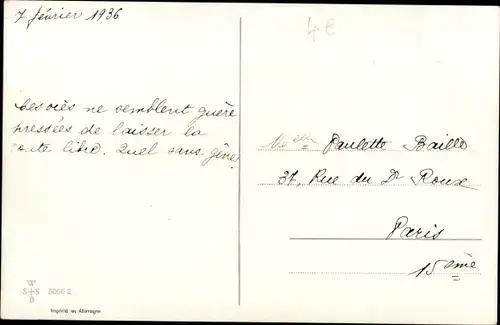 7 février 1936
4 €
Ces oies ne semblent guère
pressées de laisser la
route libre. Quel sans gêne!
Melle Paulette Baille
37, Rue du Dr Roux
Paris
15ème
W
S+S
B
5066 2
Imprimé en Allemagne